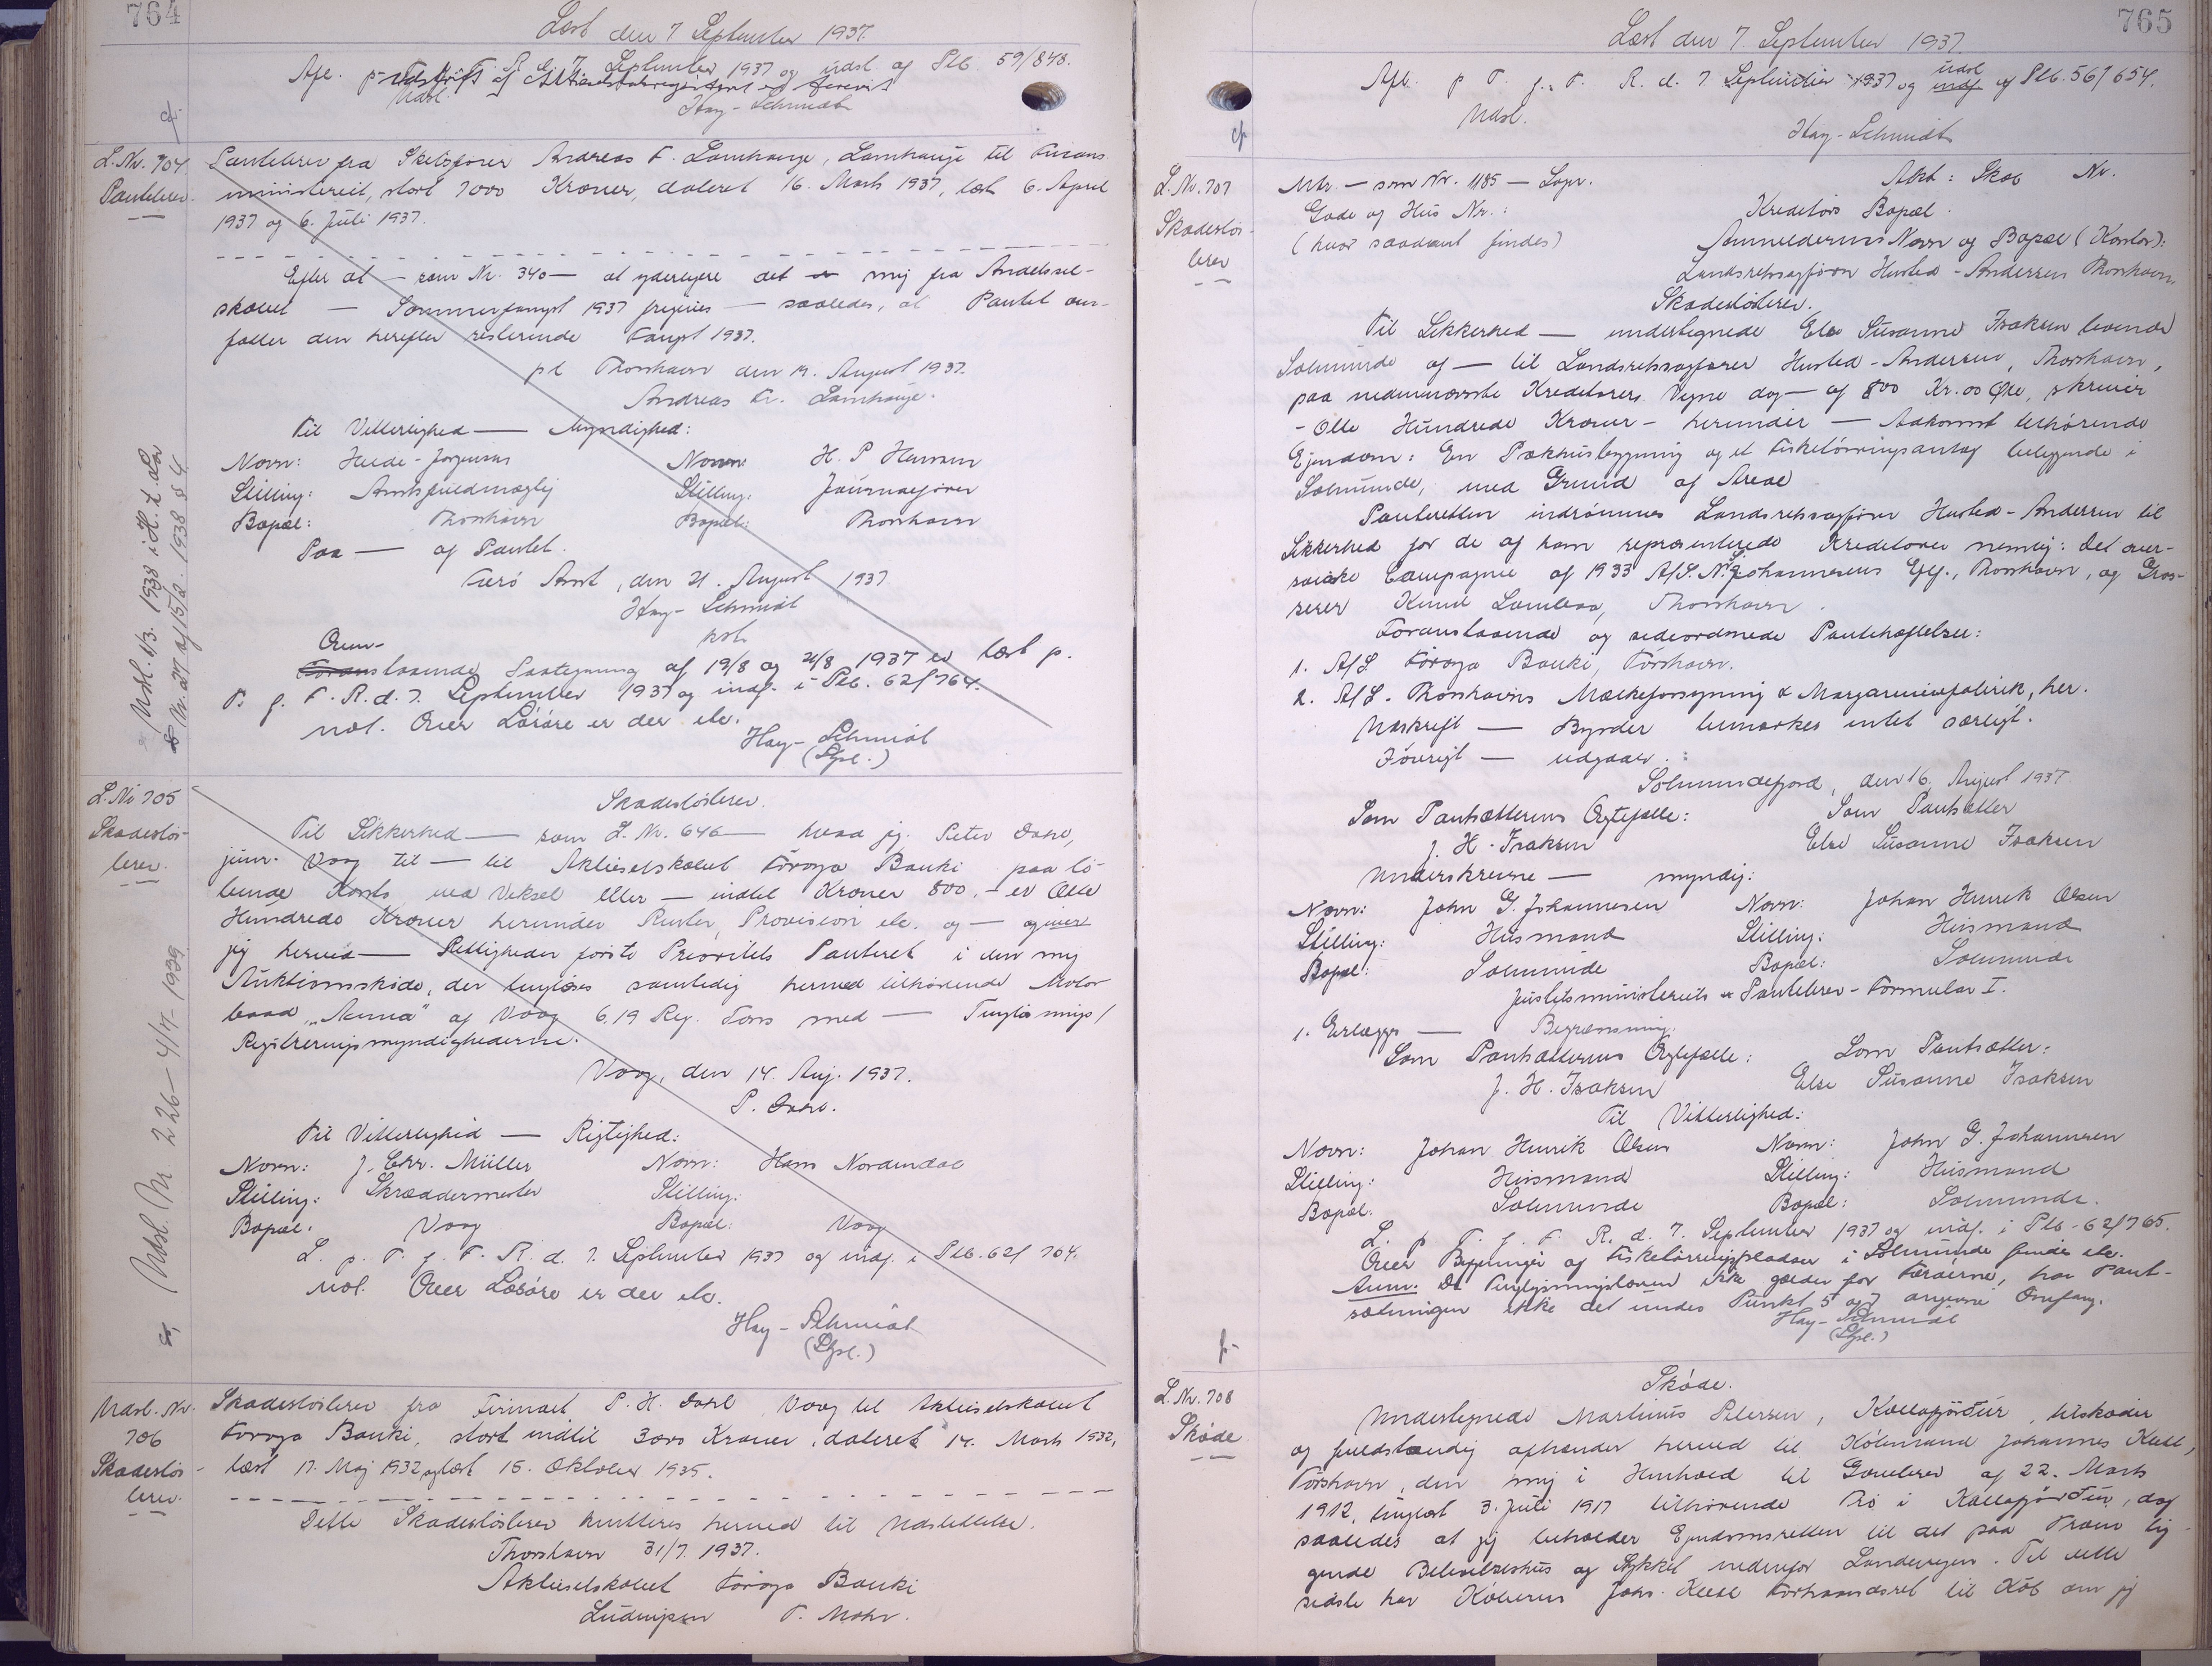 764
Læst den 7 September 1937.
Afl. p. T. f. F. R. d. 7. September 1937 og udsl. af Plb. 59/848.
Udsl.
Hay-Schmidt
L.Nr. 704.
Pantebrev.
Pantebrev fra Skibsfører Andreas F. Lamhauge, Lamhauge til Finans
ministeriet, stort 7000 Kroner, dateret 16. Marts 1937, læst 6. April
1937 og 6. Juli 1937.
Efter at — som Nr. 340 — at yderligere det mig fra Andelssel-
skabet — Sommerfangst 1937 frigives — saaledes, at Pantet om-
fatter den herefter resterende Fangst 1937.
pt Thorshavn den 19. August 1937.
Andreas Fr. Lamhauge.
Til Vitterlighed — Myndighed:
Navn: Heide-Jørgensen Navn: H. P. Hansen
Stilling: Amtsfuldmægtig Stilling: Journalfører
Bopæl: Thorshavn Bopæl: Thorshavn
Paa — af Pantet.
Færø Amt, den 21. August 1937
Hay-Schmidt
kst.
Oven-
staaende Paategning af 19/8 og 21/8 1937 er læst p.
T. f. F. R. d. 7. September 1937 og indf. i Plb. 62/764.
Udl. Over Løsøre er der ele.
Hay-Schmidt
(Lgsl.)
Udsl. 1/3. 1938 i H. t. Lov
Nr. 27 af 15/2. 1938 § 4.
L.Nr 705
Skadesløs-
brev.
Skadesløsbrev.
Til Sikkerhed — som L.Nr. 646 — hvad jeg Peter Dahl,
junr. Vaag til — til Aktieselskabet Føroya Banki paa lø-
bende Konto ved Veksel eller — indtil Kroner 800,- er Otte
Hundrede Kroner herunder Renter, Provision etc. og — og giver
jeg herved — Rettigheder første Prioritets Panteret i den mig
Auktionsskøde, der tinglæses samtidig hermed tilhørende Motor
baad "Anna" af Vaag 6,19 Reg. Tons med — Tinglæsnings/
Registreringsmyndighederne.
Vaag, den 14. Aug. 1937.
P. Dahl.
Til Vitterlighed — Rigtighed:
Navn: J. Chr. Müller Navn: Hans Nordendal
Stilling: Skræddermester Stilling:
Bopæl: Vaag Bopæl: Vaag
L. p. T. f. F. R. d. 7. September 1937 og indf. i Plb. 62/704.
Udl. Over Løsøre er der ele.
Hay-Schmidt
(Lgsl.)
Udsl. Nr. 226 — 4/7 - 1939
Udsl. Nr.
706
Skadesløs-
brev.
Skadesløsbrev fra Firmaet P. H. Dahl, Vaag til Aktieselskabet
Føroya Banki, stort indtil 3000 Kroner, dateret 14. Marts 1932,
læst 17. Maj 1932 og læst 15. Oktober 1935.
Dette Skadesløsbrev kvitteres herved til Udslettelse.
Thorshavn 31/7. 1937.
Aktieselskabet Føroya Banki
Ludvigsen T. Mohr.
765
Læst den 7. September 1937.
Afl. p T. f. F. R. d. 7 September 1937 og udsl af Plb. 56/654.
Udsl.
Hay-Schmidt
L.Nr. 707
Skadesløs-
brev
Mtr. — som Nr. 1185 — Sogn. Akt: Skab Nr.
Gade og Hus Nr.: Kreditors Bopæl.
(hvor saadant findes) Anmelderens Navn og Bopæl (Kontor):
Landsretssagfører Husted-Andersen Thorshavn
Skadesløsbrev.
Til Sikkerhed — undertegnede Else Susanne Isaksen boende
Solmunde og — til Landsretssagfører Husted-Andersen, Thorshavn,
paa nedennævnte Kreditorers Vegne dog — af 800 Kr. 00 Øre, skriver
- Otte Hundrede Kroner - herunder — Adkomst tilhørende
Ejendom: En Pakhusbygning og et Fisketørringsanlæg beliggende i
Solmunde, med Grund af Areal
Panteretten indrømmes Landsretssagfører Husted-Andersen til
Sikkerhed for de af ham repræsenterede Kreditorer nemlig: Det over-
søiske Compagnie af 1933 A/S. N. J. Johannesens Eftf., Thorshavn, og Gros-
serer Knud Lamhaa, Thorshavn.
Foranstaaende og sideordnede Pantehæftelser:
1. A/S Føroya Banki, Tórshavn.
2. A/S. Thorshavns Mælkeforsyning & Margarinefabrik, her.
Udskrift — Byrder bemærkes intet særligt.
Iøvrigt — udgaar.
Solmundefjord, den 16. August 1937.
Som Pantsætterens Ægtefælle: Som Pantsætter
J. H. Isaksen Else Susanne Isaksen
Underskrevne — myndig:
Navn: John G. Johannesen Navn: Johan Henrik Olsen
Stilling: Husmand Stilling: Husmand
Bopæl: Solmunde Bopæl: Solmunde
Justitsministeriets Pantebrev-Formular I.
1. Erlægges — Begrænsning.
Som Pantsætterens Ægtefælle: Som Pantsætter:
J. H. Isaksen Else Susanne Isaksen
Til Vitterlighed:
Navn: Johan Henrik Olsen Navn: John G. Johannesen
Stilling: Husmand Stilling: Husmand
Bopæl: Solmunde Bopæl: Solmunde.
L. p T. f. F. R. d. 7. September 1937 og indf. i Plb. 62/765.
Over Bygninger og Fisketørringspladser i Solmunde findes ele.
Anm: Da Tinglysningsloven ikke gælder for Færøerne, har Pant-
sætningen ikke det under Punkt 5 og 7 angivne Omfang.
Hay-Schmidt
(Lgsl.)
L.Nr. 708
Skøde
Skøde.
Undertegnede Martinus Petersen, Kollafjørður, tilskøder
og fuldstændig afhænder herved til Købmand Johannes Kull,
Tórshavn, den mig i Henhold til Gavebrev af 22. Marts
1912, tinglæst 3. Juli 1917 tilhørende Trø i Kollafjørður, dog
saaledes at jeg beholder Ejendomsretten til det paa Trøen lig-
gende Beboelseshus og Stykket nedenfor Landevejen. Til dette
sidste har Køberen Johs. Kull Forhaandsret til Køb om jeg